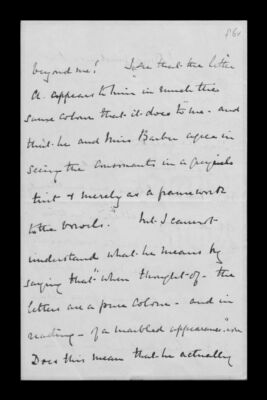 beyond me! I see that the letter
A. appears to him in much the
same colour that it does to me - and
that he and Miss Barber agree in
seeing the consonants in a
tint & merely as a framework
to the vowels." But I cannot
understand what he means by
saying that "when thought of - the
letters are a pure colour - and in
reading - of a marbled appearance"
Does this mean that he actually